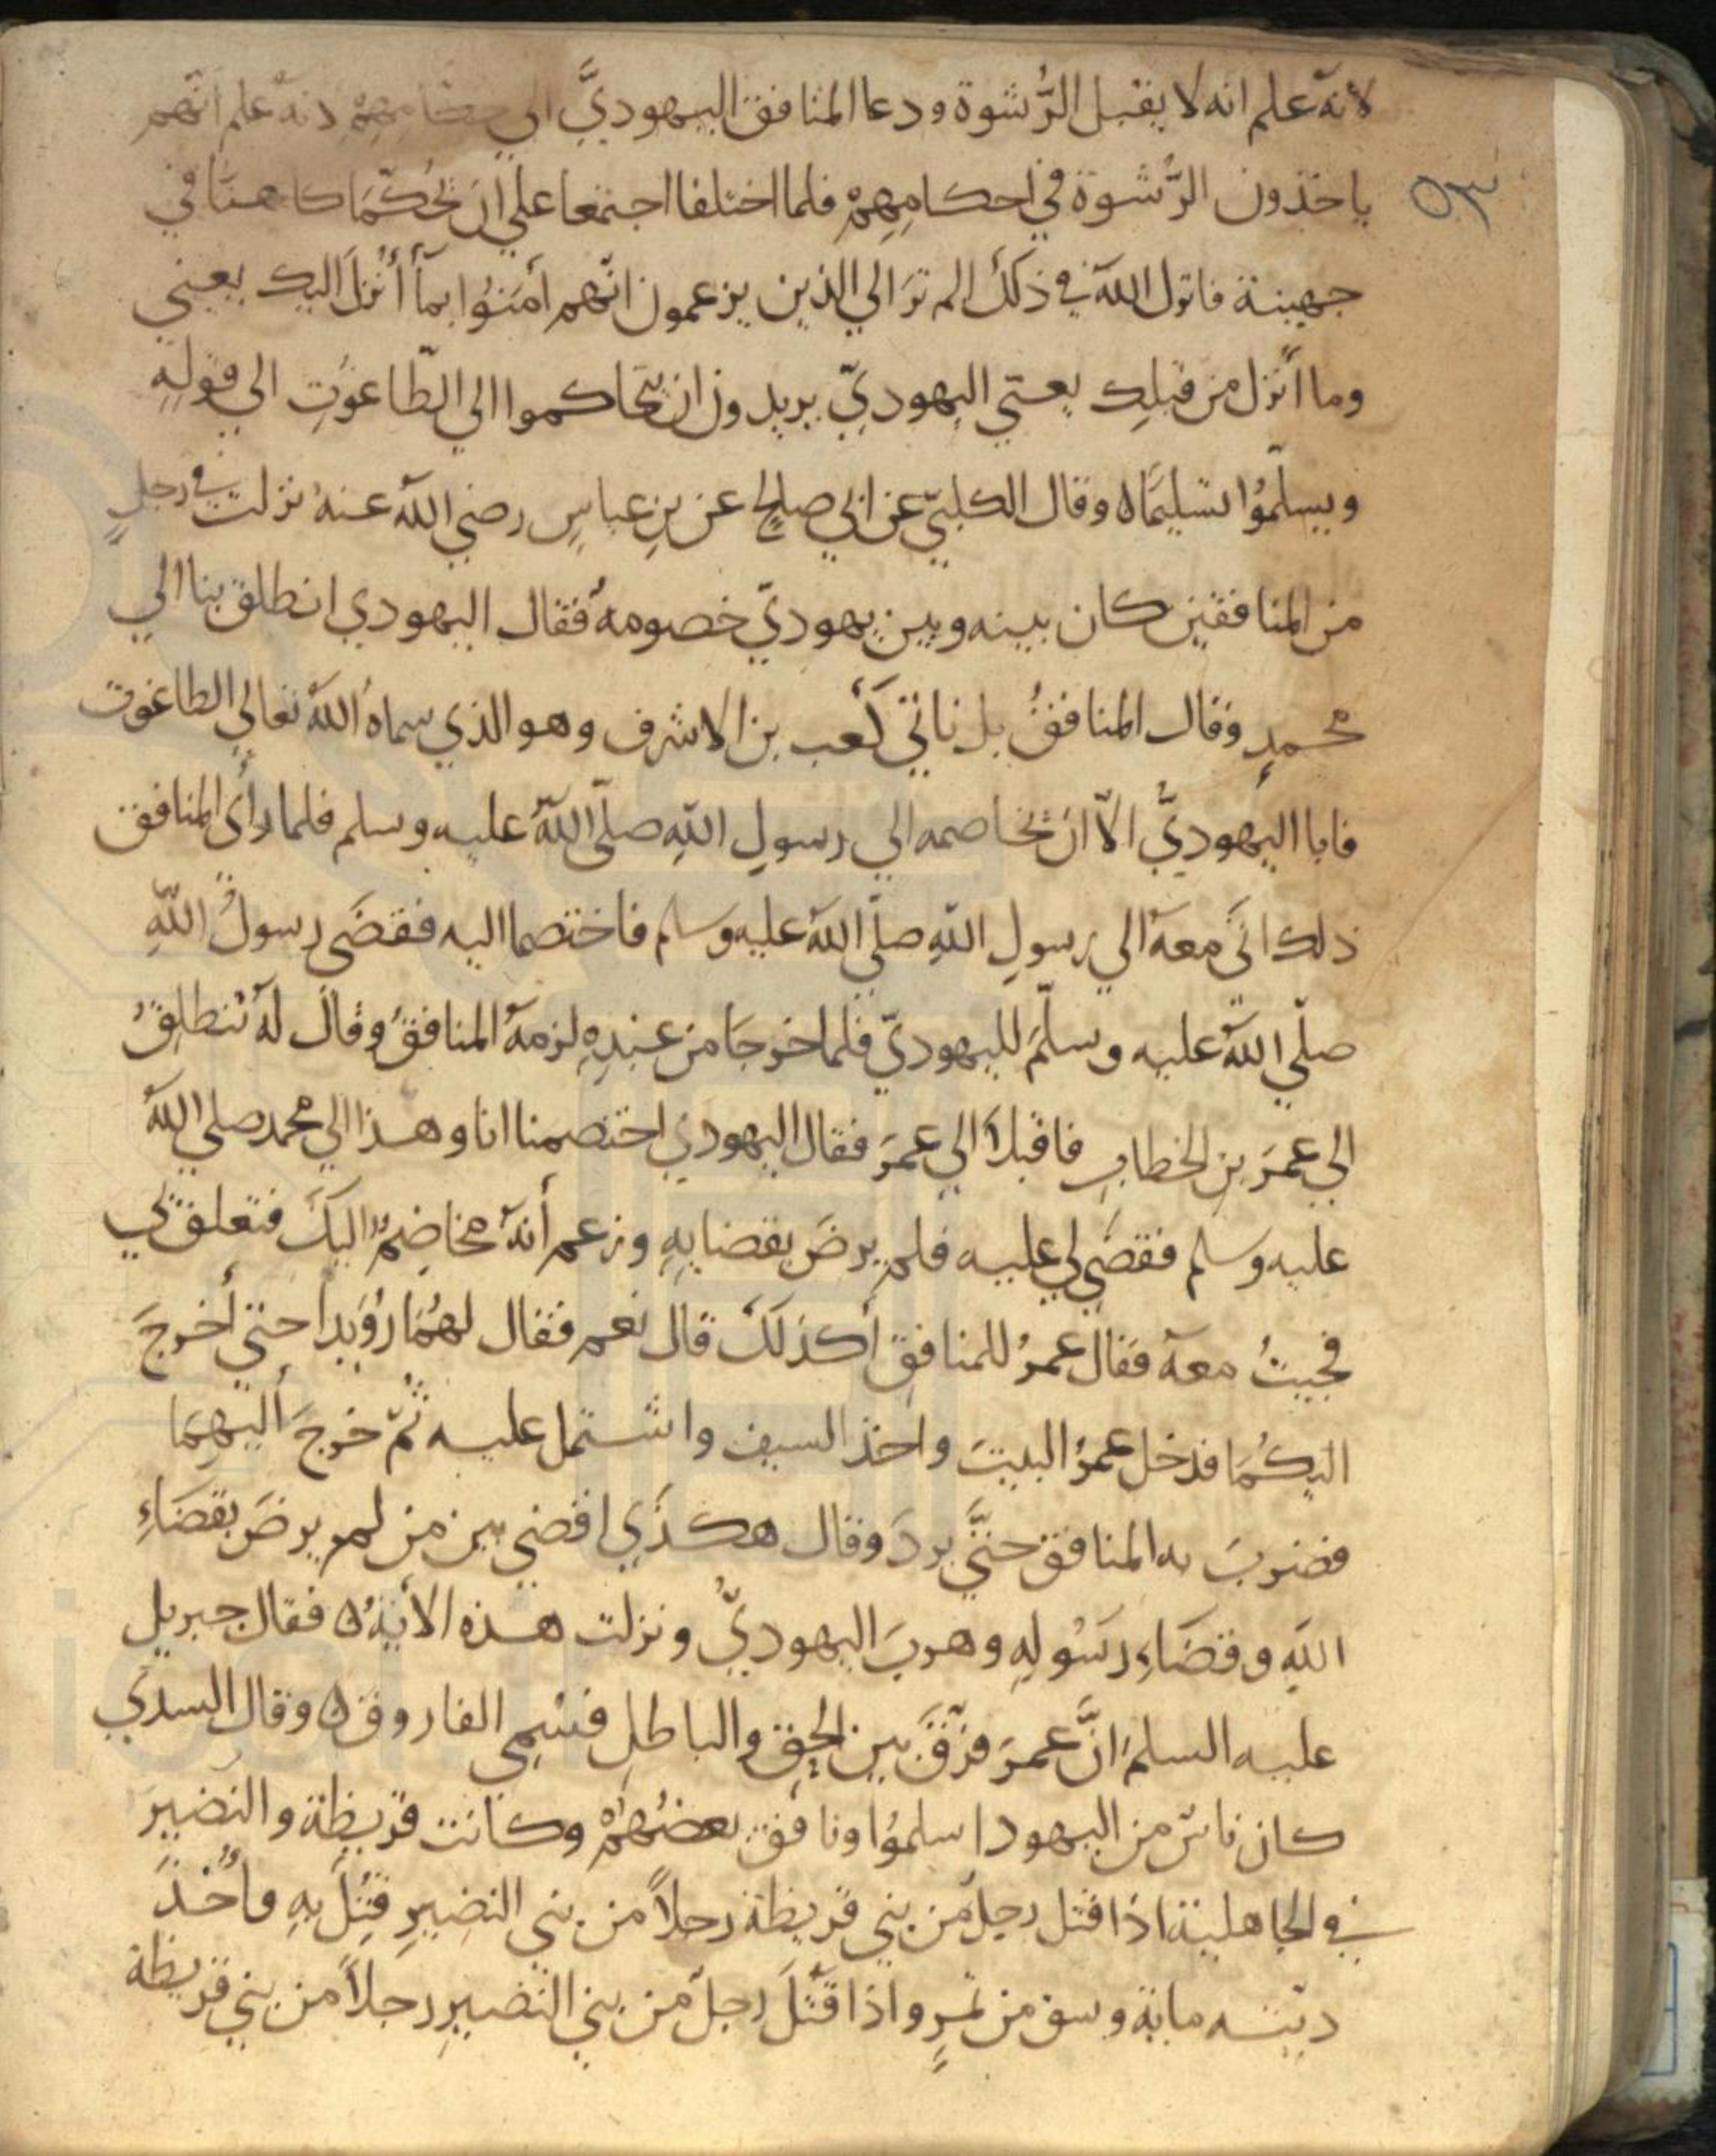 لانه علم انه لا يقبل الرُّشوة ودعا المنافق اليهوديَّ الي حكامهم لانه علم انهم
ياخذون الرُّشوة في احكامِهِمْ فلما اختلفا اجتمعا علي ان يُحكّمَا كاهنًا في
٥٣
جهينة فانزل الله في ذلك الم ترَ الي الذين يزعمون انهم اٰمَنوُا بمآ أُنْزلَ اليك يعني
وما أُنزل من قبلِك يعني اليهوديّ يريدون ان يتحاكموا الي الطّاغوُتِ الي قولِهِ
ويسلّموُا تسليمًا ه وقال الكلبيّ عن ابي صالحٍ عن بنِ عباسٍ رضي الله عنهُ نزلت في رجلٍ
من المنافقين كان بينه وبين يهوديّ خصومةٌ فقال اليهودي انطلق بنا الي
محمدٍ وقال المنافقُ بل ناتي كَعب بن الاشرف وهو الذي سماهُ اللهُ تعالي الطاغوت
فابا اليهوديُّ الاّ ان يخاصمه الي رسولِ اللهِ صلّي اللهُ عليه وسلم فلما رأى المنافق
ذلك اتَي معهُ الي رسولِ اللهِ صلّي اللهُ عليه وسلم فاختصما اليه فقضَي رسولُ اللهِ
صلّي اللهُ عليه وسلّمَ لليهوديّ فلما خرجَا من عندِهِ لزمهُ المنافقُ وقال لهُ ننطلِقُ
الي عمرَ بنِ الخطابِ فاقبلاَ الي عمَرَ فقال اليهودي اختصمنا انا وهذا الي محمد صلي اللهُ
عليه وسلم فقضَي لي عليه فلم يرضَ بقضايِهِ وزعم أنهُ مخاصِمٌ اليكَ فتعلق بي
فجيتُ معهُ فقال عمرُ للمنافقِ أكذلكَ قال نعم فقال لهُمَا رُوَيداً حتي أخرجَ
اليكُمَا فدخل عمرُ البيتَ واخذ السيف واشتمل عليه ثُمّ خرجَ اليهِمَا
فضربَ به المنافق حتيَّ بردَ وقال هكذَي اقضي بين من لم يرضَ بقضَاءِ
اللهِ وقضَاءِ رسُولِهِ وهربَ اليهوديُّ ونزلت هذه الأيةُ ه فقال جبريل
عليه السلمُ انَّ عمرَ فرّقَ بين الحقِ والباطلِ فسُمِيَ الفاروق ه وقال السدي
كان ناسٌ من اليهود اسلموُا ونافق بعضُهُمْ وكانت قريظة والنضيرَ
في الجاهلية اذا قتل رجلٌ من بني قريظة رجلاً من بني النضيرِ قُتِلَ بِهِ وأُخُذَ
ديته ماية وسق من تمرٍ واذا قَتَلَ رجلٌ من بني النضيرِ رجلاً من بني قريظة